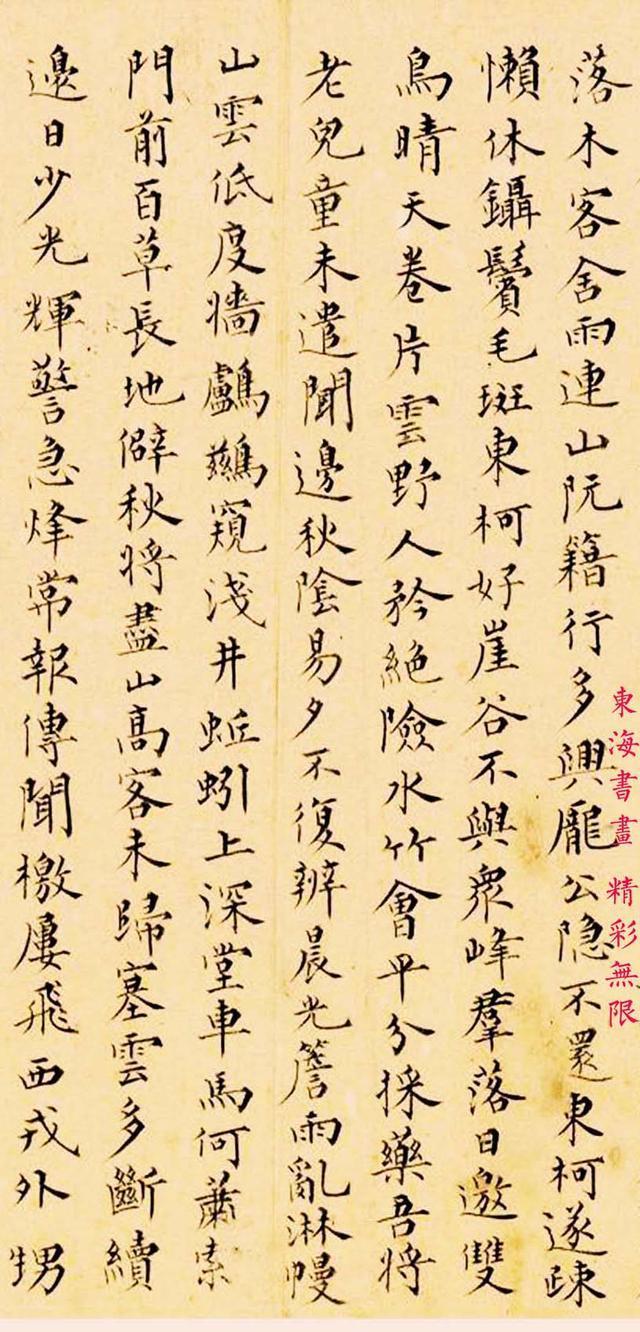 落木客舍雨連山阮籍行多興龐公隐不還東柯遂疎
懶休鑷鬢毛斑東柯好崖谷不與衆峰羣落日邀雙
鳥晴天卷片雲野人矜絕險水竹會平分採藥吾將
老兒童未遣聞邊秋陰易夕不復辨晨光簷雨亂淋幔
山雲低度牆鸕鷀窺淺井蚯蚓上深堂車馬何蕭索
門前百草長地僻秋將盡山高客未歸塞雲多斷續
邊日少光輝警急烽常報傳聞檄屢飛西戎外甥
東海書畫 精彩無限